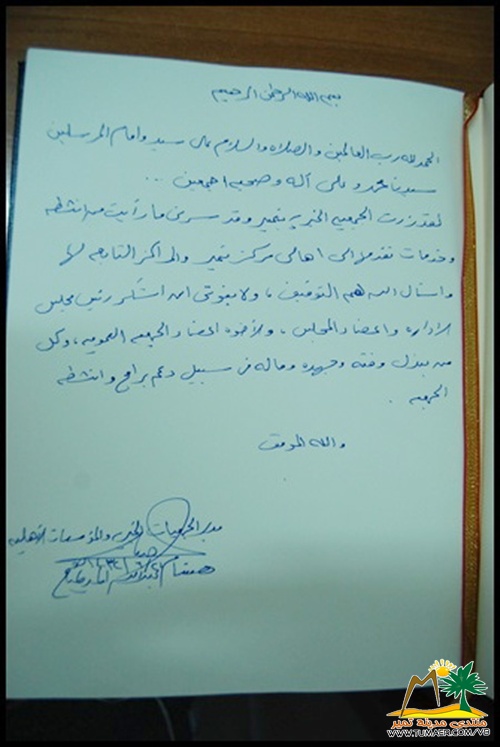 بسم الله الرحمن الرحيم
الحمد لله رب العالمين والصلاه والسلام على سيد وامام المرسلين
سيدنا محمد وعلى آله وصحبه اجمعين ...
لقد زرت الجمعيه الخيريه بتمير وقد سرني ما رأيت من انشطه
وخدمات تقدمها الى اهالي مركز تمير والمراكز التابعه لها
واسأل الله لهم التوفيق ، ولا يفوتني ان اشكر رئيس مجلس
الاداره واعضاء المجلس ، والأخوه اعضاء الجمعيه العموميه ، وكل
من يبذل وقته وجهده وماله في سبيل دعم برامج وانشطه
الجمعيه .
والله الموفق
مدير الجمعيات الخيريه والمؤسسات الأهليه
منتدى مدينة تمير
WWW.TUMAER.COM/VB